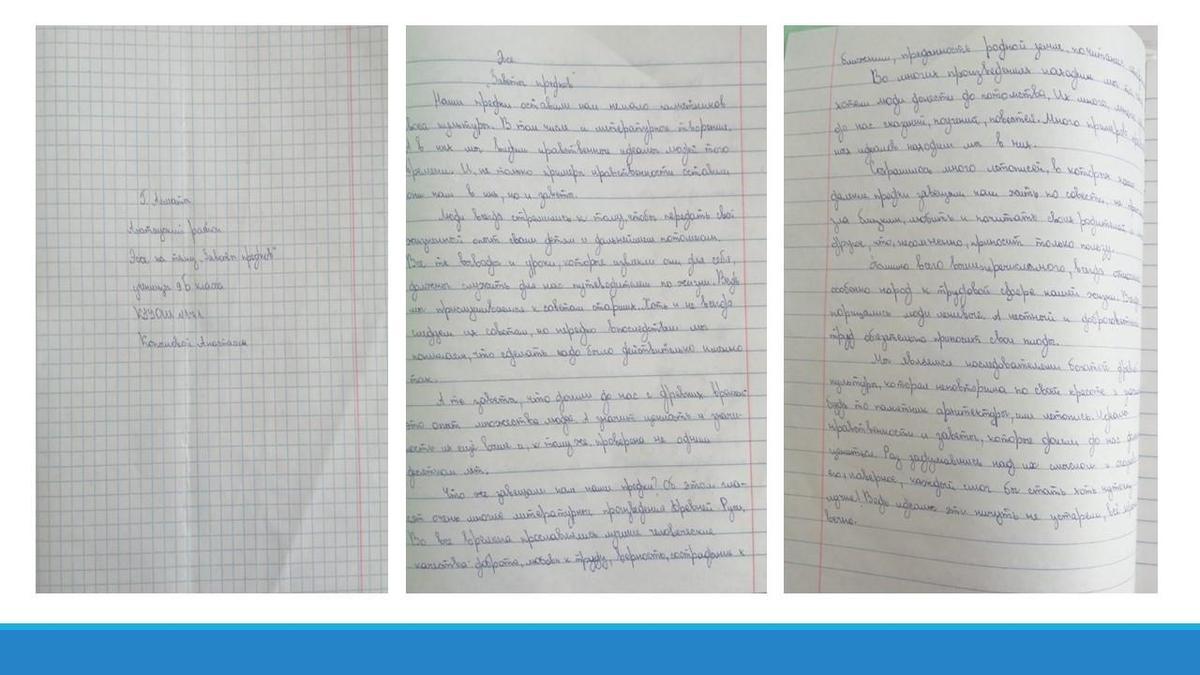 г. Алматы
Алатауский район
Эссе на тему „Заветы предков"
ученицы 9 б класса
КГУ ОШ №
Анастасии
Эссе
„Заветы предков"
Наши предки оставили нам немало памятников
своей культуры. В том числе и литературное творение.
А в них мы видим нравственные идеалы людей того
времени. И, не только примеры нравственности оставили
они нам в них, но и заветы.
Люди всегда стремились к тому, чтобы передать свой
жизненный опыт своим детям и дальнейшим потомкам.
Все те выводы и уроки, которые извлекли они для себя,
должны служить для нас путеводителями по жизни. Ведь
мы прислушиваемся к советам старших. Хоть и не всегда
следуем их советам, но нередко впоследствии мы
понимаем, что сделать надо было действительно именно
так.
А те заветы, что дошли до нас с древних времен
это опыт множества людей. А значит ценность и значи-
мость их ещё выше и, к тому же, проверена не одним
десятком лет.
Что же завещали нам наши предки? Об этом гла-
сят очень многие литературные произведения Древней Руси.
Во все времена прославлялись лучшие человеческие
качества: доброта, любовь к труду, верность, сострадание к
ближним, преданность родной земле, почитание
Во многих произведениях находим мы то
хотели люди донести до потомства. Их много,
до нас сказаний, поучений, повестей. Много примеров
идеалов находим мы в них.
Сохранилось много летописей, в которых наши
далекие предки завещали нам жить по совести, не
зла близким, любить и почитать своих родителей
другое, что, несомненно, приносит только пользу.
Помимо всего вышеперечисленного, всегда
особенно народ к трудовой сфере нашей жизни. Всегда
порицались люди ленивые. А честный и
труд обязательно приносит свои плоды.
Мы являемся последователями богатой
культуры, которая неповторима по своей красоте и
будь то памятник архитектуры, или летопись. Идеалы
нравственности и заветы, которые дошли до нас
ценятся. Раз задумавшись над их смыслом и
его, наверное, каждый смог бы стать хоть
лучше! Ведь идеалы эти ничуть не устарели, всё
вечно.